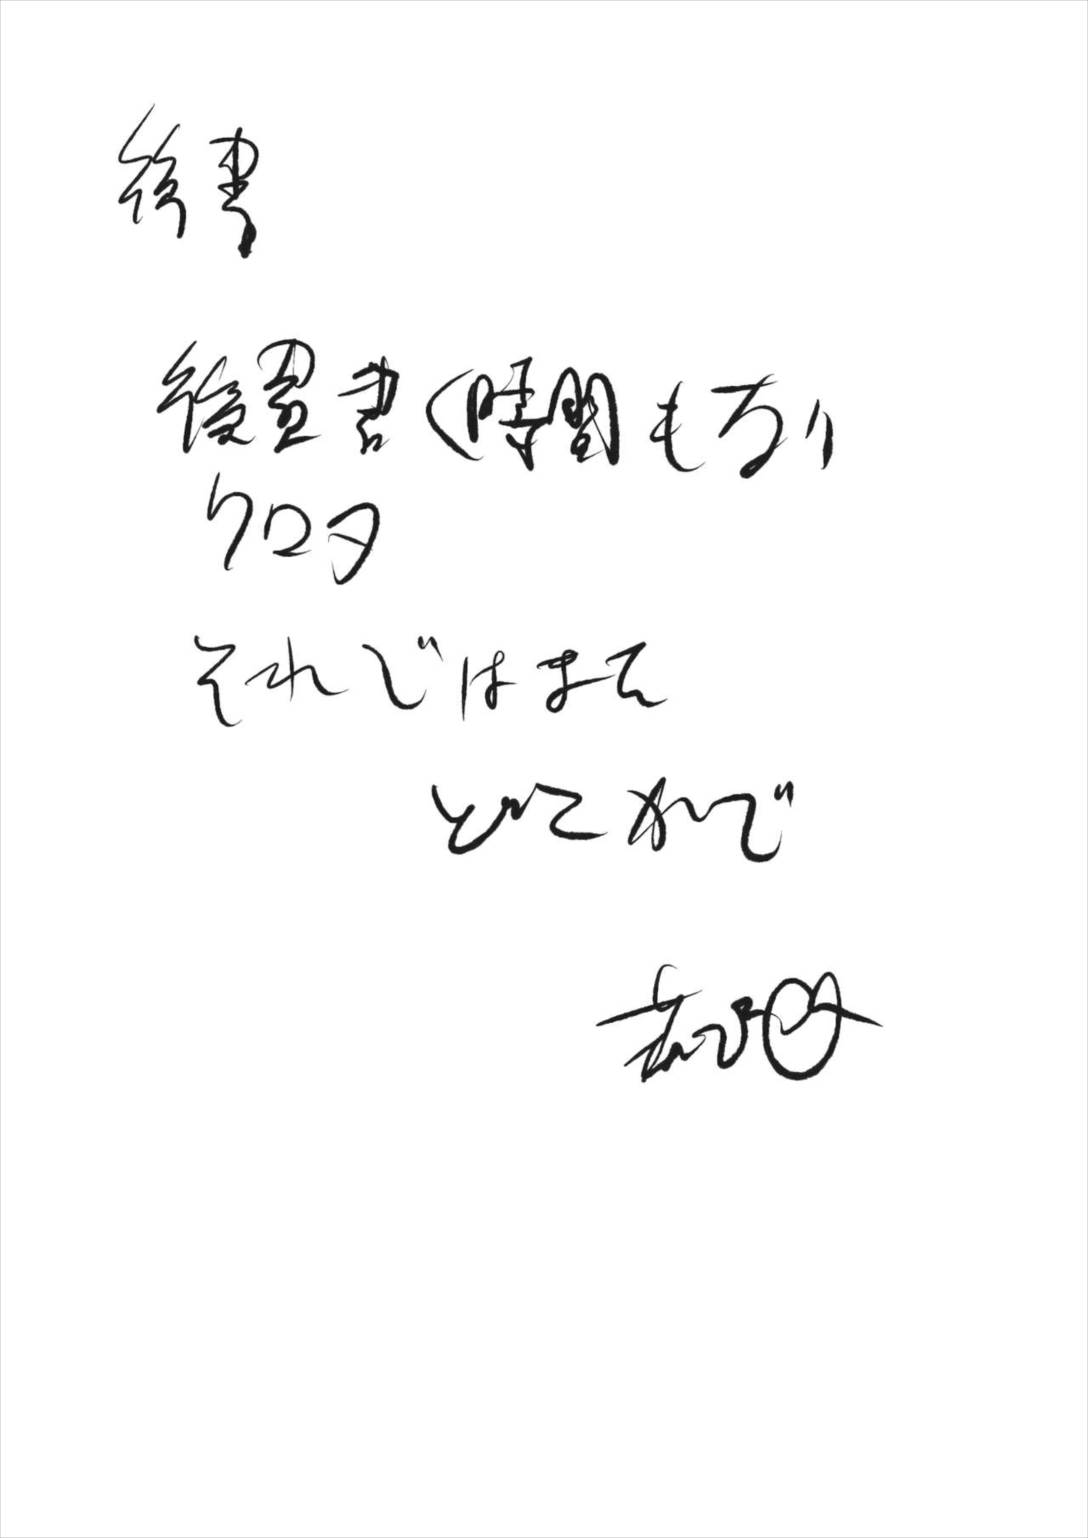 後書
後置書く時間もない
クロタ
それではまた
どこかで